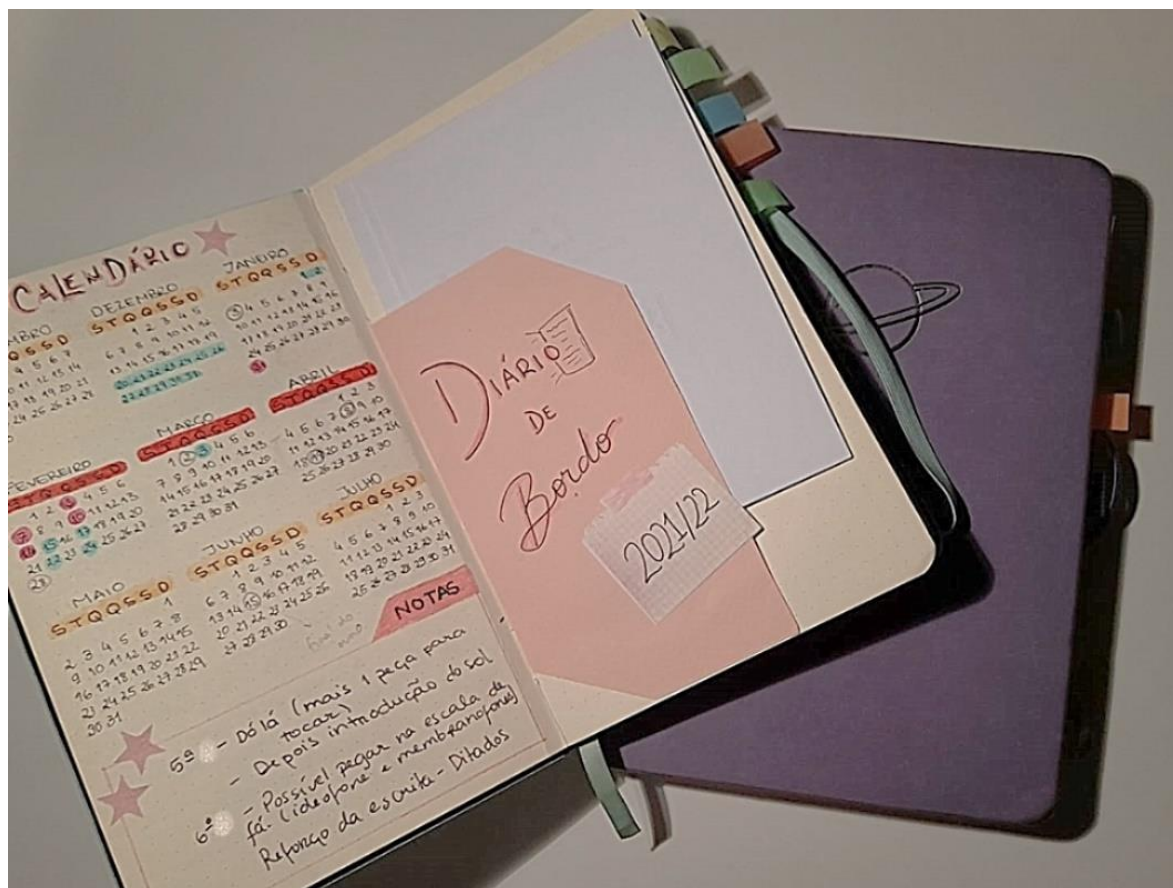 CALENDÁRIO
DEZEMBRO
S T Q Q S S D
1 2 3 4 5
6 7 8 9 10 11 12
13 14 15 16 17 18 19
20 21 22 23 24 25 26
27 28 29 30 31
JANEIRO
S T Q Q S S D
1 2
3 4 5 6 7 8 9
10 11 12 13 14 15 16
17 18 19 20 21 22 23
24 25 26 27 28 29 30
31
FEVEREIRO
S T Q Q S S D
1 2 3 4 5 6
7 8 9 10 11 12 13
14 15 16 17 18 19 20
21 22 23 24 25 26 27
MARÇO
S T Q Q S S D
1 2 3 4 5 6
7 8 9 10 11 12 13
14 15 16 17 18 19 20
21 22 23 24 25 26 27
28 29 30 31
ABRIL
S T Q Q S S D
1 2 3
4 5 6 7 8 9 10
11 12 13 14 15 16 17
18 19 20 21 22 23 24
25 26 27 28 29 30
MAIO
S T Q Q S S D
1
2 3 4 5 6 7 8
9 10 11 12 13 14 15
16 17 18 19 20 21 22
23 24 25 26 27 28 29
30 31
JUNHO
S T Q Q S S D
1 2 3 4 5
6 7 8 9 10 11 12
13 14 15 16 17 18 19
20 21 22 23 24 25 26
27 28 29 30
JULHO
S T Q Q S S D
1 2 3
4 5 6 7 8 9 10
11 12 13 14 15 16 17
18 19 20 21 22 23 24
25 26 27 28 29 30 31
NOTAS
5º - Dó lá (mais 1 peça para
tocar)
- Depois introdução do sol
6º - Possível pegar na escala de
fá (ideofone e membranofones)
Reforço da escrita - Ditados
DIÁRIO
DE
Bordo
2021/22